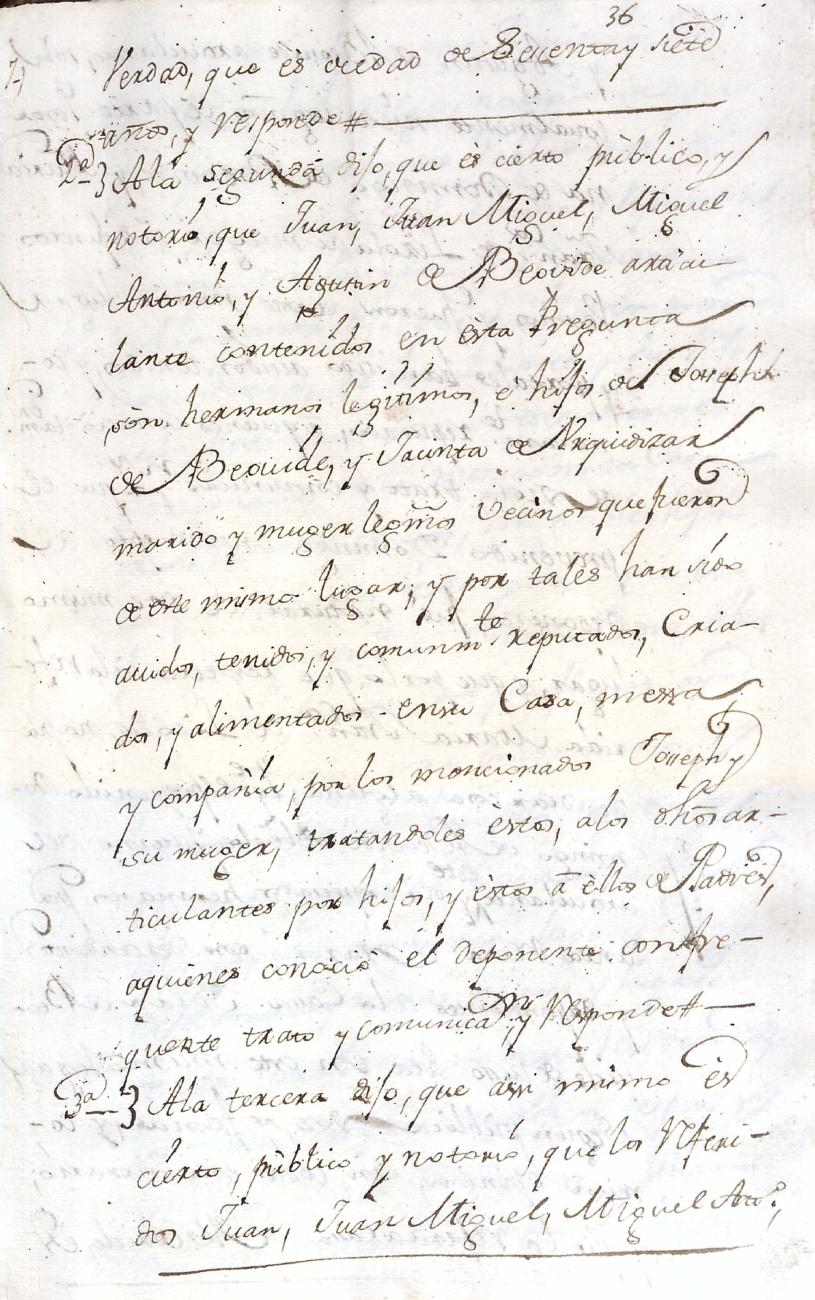 36
Verdad, que es de edad de Sesenta y siete
años, y responde #
2ª } A la segunda dijo, que es cierto público, y
notorio, que Juan, Juan Miguel, Miguel
Antonio, y Agustin de Beovide articu-
lante contenidos en esta Pregunta
son hermanos legitimos, e hijos de Joseph
de Beovide, y Jacinta de Arguidizar
marido y muger legmos Vecinos que fueron
de este mismo lugar, y por tales han sido
auidos, tenidos, y comunmte reputados, Cria-
dos, y alimentados en su Casa, messa
y compañia, por los mencionados Joseph y
su muger, tratandoles estos, a los dhos ar-
ticulantes por hijos, y éstos à ellos de Padres,
a quienes conoció el deponente con fre-
quente trato y comunicaon, y responde #
3ª } A la tercera dijo, que assi mismo és
cierto, público y notorio, que los referi-
dos Juan, Juan Miguel, Miguel Anto,